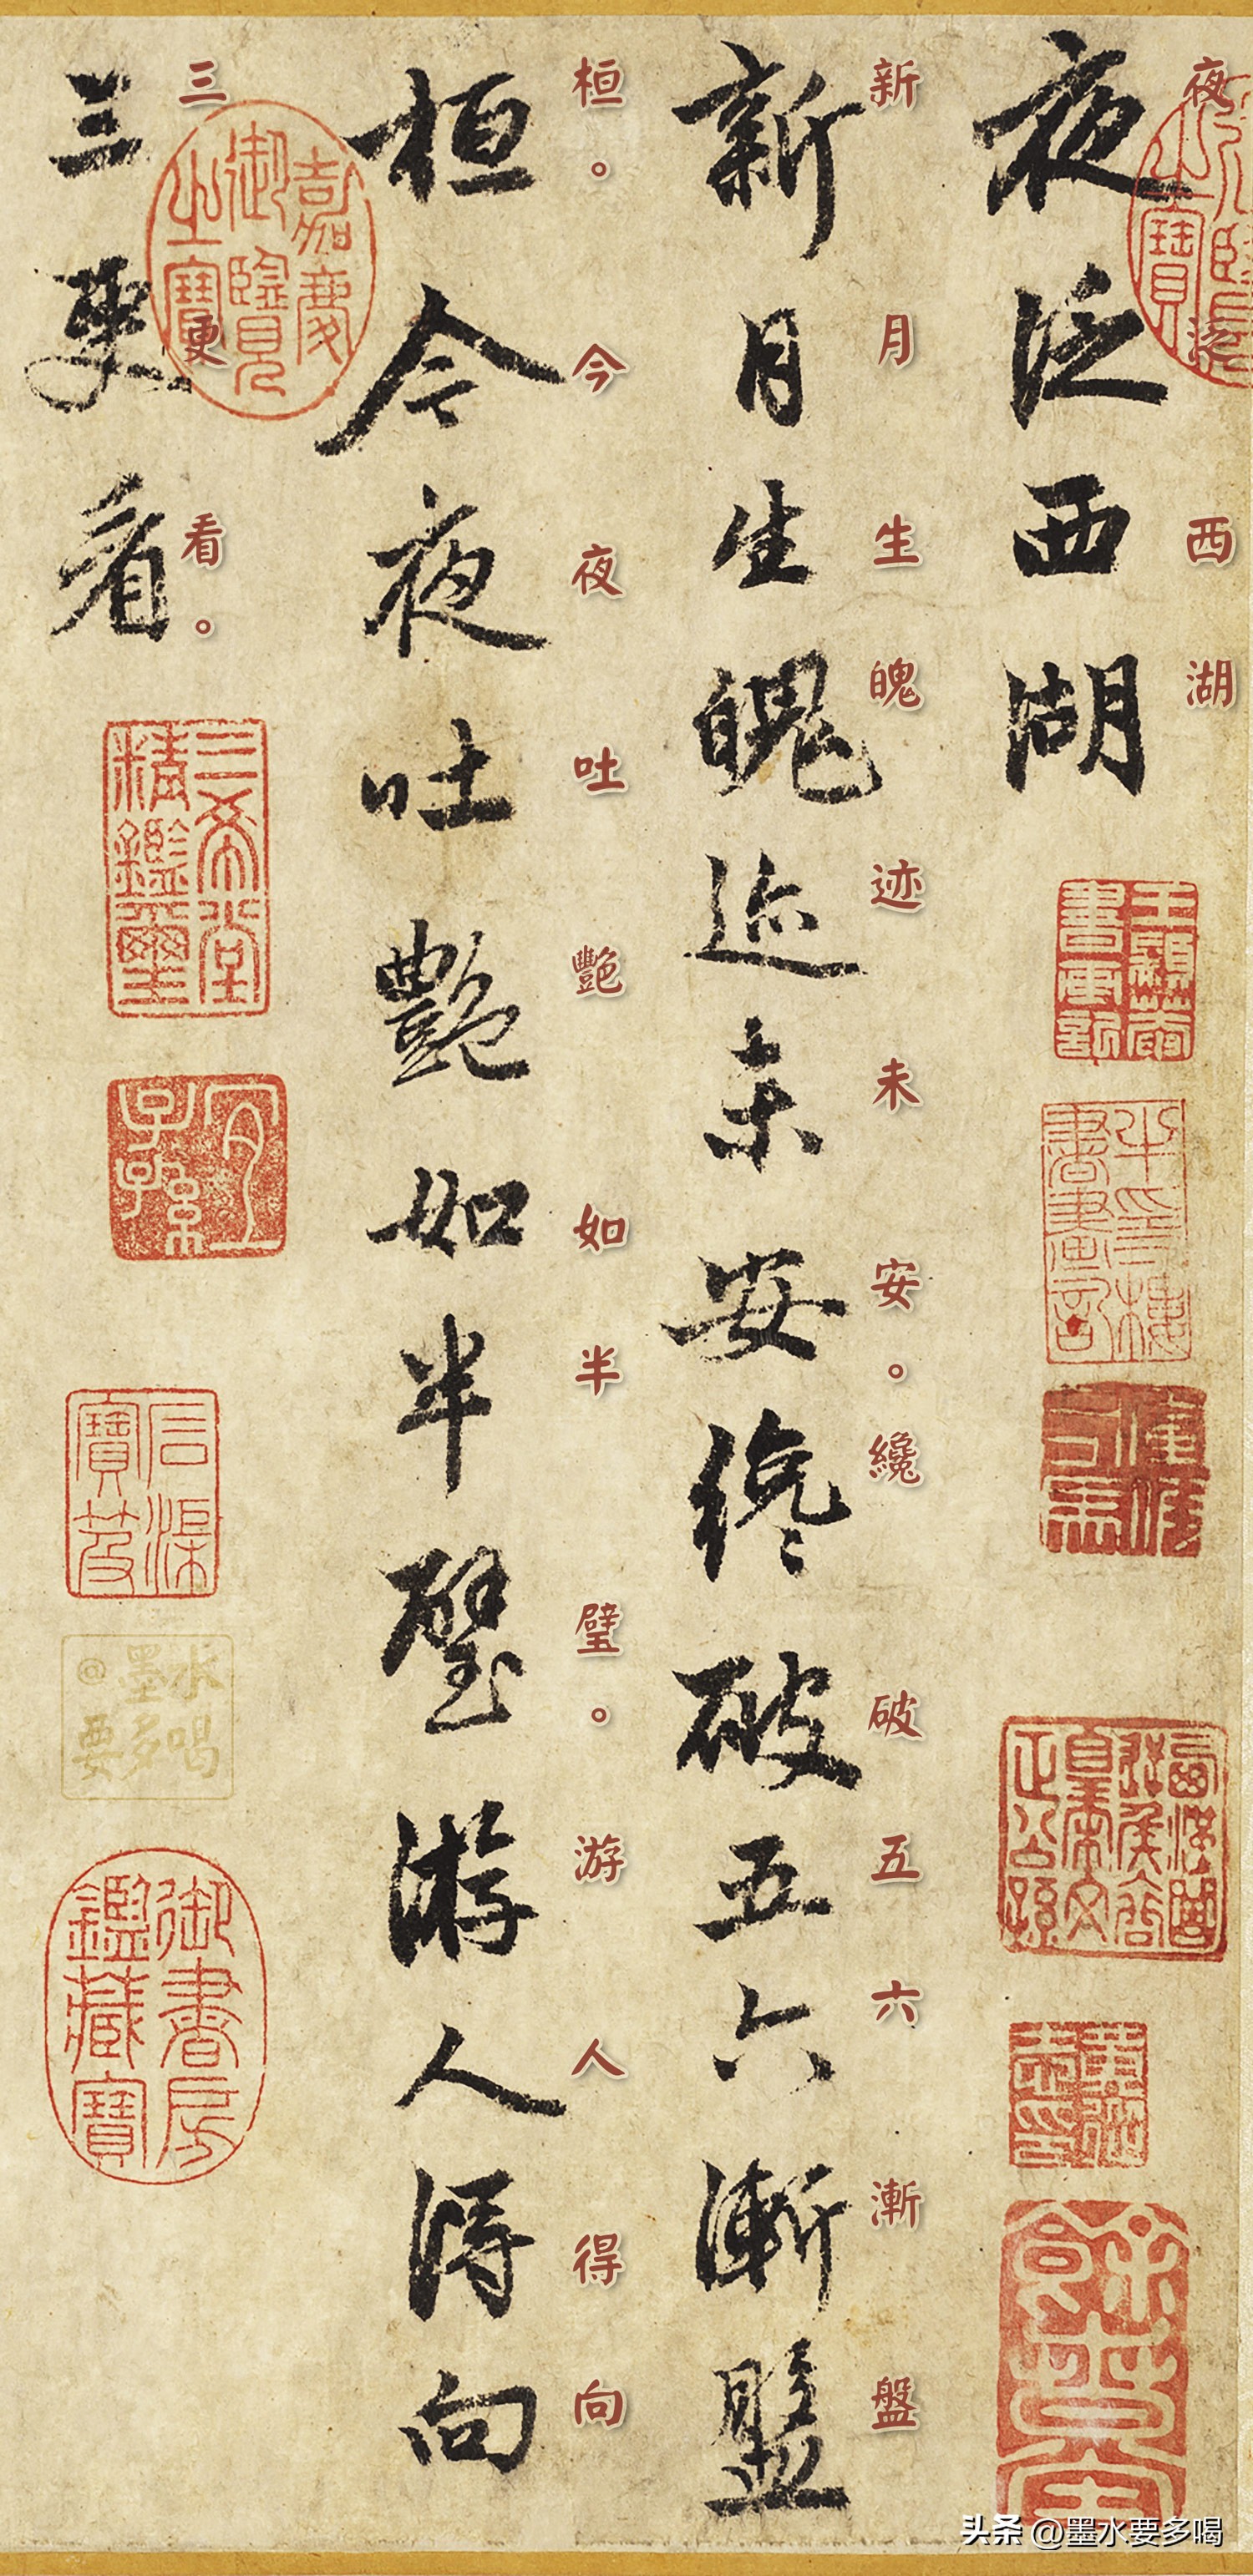 夜泛西湖
夜泛西湖
新月生魄迹未安。纔破五六漸盤
新月生魄迹未安纔破五六漸盤
桓。今夜吐艷如半璧。游人得向
桓今夜吐艷如半璧游人得向
三更看。
三更看
嘉慶御覽之寶
三希堂精鑑璽
宜子孫
石渠寶笈
@墨水要多喝
御書房鑑藏寶
头条 @墨水要多喝